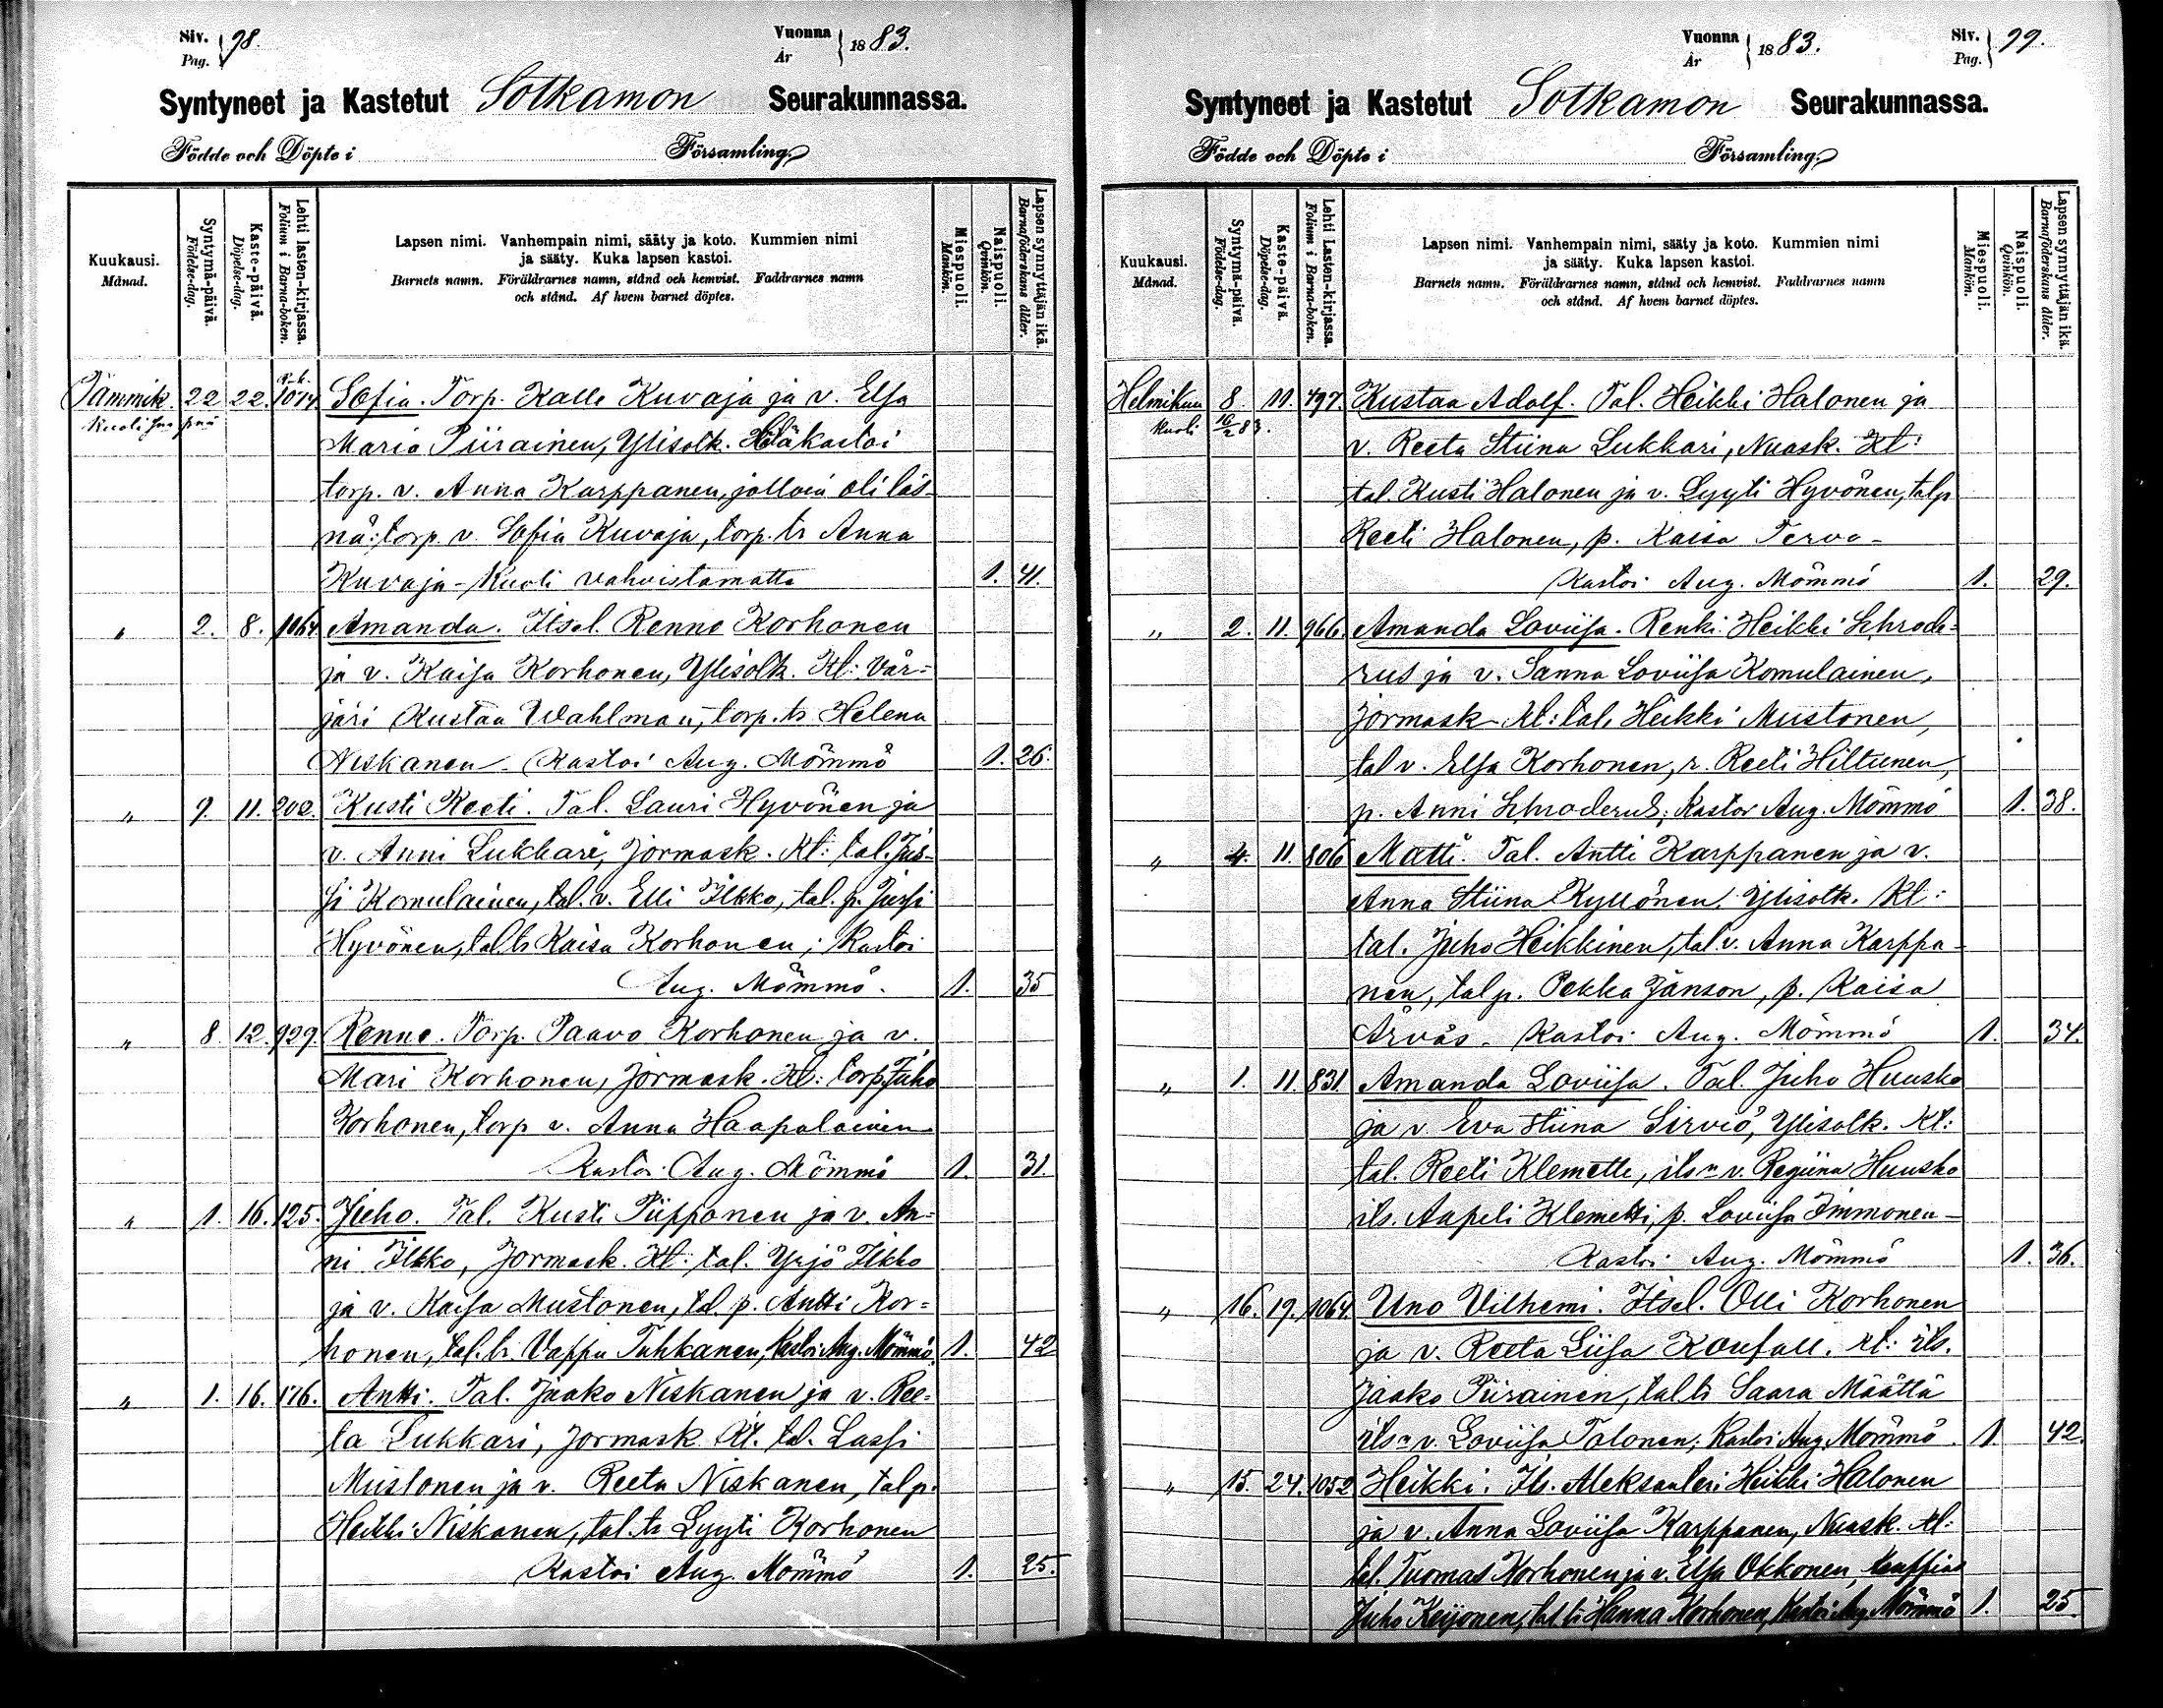 Siv. Pag. 98.
Vuonna År 1883.
Syntyneet ja Kastetut Sotkamon Seurakunnassa.
Födde och Döpte i Församling.
Kuukausi. Månad.
Syntymä-päivä. Födelse-dag.
Kaste-päivä. Döpelse-dag.
Lehti lasten-kirjassa. Folium i Barna-boken.
Lapsen nimi. Vanhempain nimi, sääty ja koto. Kummien nimi
ja sääty. Kuka lapsen kastoi.
Barnets namn. Föräldrarnes namn, stånd och hemvist. Faddrarnes namn
och stånd. Af hvem barnet döptes.
Miespuoli. Mankön.
Naispuoli. Qvinkön.
Lapsen synnyttäjän ikä. Barnaföderskans ålder.
Tammik. 22 22. R.k. 1014. Sofia. Torp. Kalle Kuvaja ja v. Elsa
Kuoli
Maria Piirainen, Ylisotk. Hätäkastoi
torp. v. Anna Karppanen, jolloin oli läs-
nä: torp. v. Sofia Kuvaja, torp. tr Anna
Kuvaja - Kuoli vahvistamatta 1. 41.
" 2. 8. 1064 Amanda. Itsel. Renno Korhonen
ja v. Kaisa Korhonen, Ylisotk. Kt: Vär=
järi Kustaa Wahlman, torp. tr Helena
Niskanen - Kastoi Aug. Mömmö 1. 26.
" 9. 11. 202. Kusti Reeti. Tal. Lauri Hyvönen ja
v. Anni Lukkari, Jormask. Kt: tal. Jus-
si Komulainen, tal. v. Elli Ilkko, tal. p. Jussi
Hyvönen, tal. tr Kaisa Korhonen; Kastoi
Aug. Mömmö. 1. 35
" 8. 12. 929. Renne. Torp. Paavo Korhonen ja v.
Mari Korhonen, Jormask. Kt: torp. Juho
Korhonen, torp v. Anna Haapalainen
Kastoi Aug. Mömmö 1. 31.
" 1. 16. 125. Juho. Tal. Kusti Piipponen ja v. An=
ni Ilkko, Jormask. Kt: tal. Yrjö Ilkko
ja v. Kaisa Mustonen, tal. p. Antti Kor=
honen, tal. tr. Vappu Tuhkanen, Kastoi Aug. Mömmö 1. 42
" 1. 16. 176. Antti. Tal. Jaako Niskanen ja v. Ree=
ta Lukkari, Jormask. Kt. tal. Lassi
Mustonen ja v. Reeta Niskanen, tal p.
Heikki Niskanen, tal. tr Lyyti Korhonen
Kastoi Aug. Mömmö 1. 25.
Vuonna År 1883.
Siv. Pag. 99.
Syntyneet ja Kastetut Sotkamon Seurakunnassa.
Födde och Döpte i Församling.
Kuukausi. Månad.
Syntymä-päivä. Födelse-dag.
Kaste-päivä. Döpelse-dag.
Lehti Lasten-kirjassa. Folium i Barna-boken.
Lapsen nimi. Vanhempain nimi, sääty ja koto. Kummien nimi
ja sääty. Kuka lapsen kastoi.
Barnets namn. Föräldrarnes namn, stånd och hemvist. Faddrarnes namn
och stånd. Af hvem barnet döptes.
Miespuoli. Mankön.
Naispuoli. Qvinkön.
Lapsen synnyttäjän ikä. Barnaföderskans ålder.
Helmikuu 8 11. 497. Kustaa Adolf. Tal. Heikki Halonen ja
Kuoli 16/2 83.
v. Reeta Stiina Lukkari, Nuask. Kt:
tal. Kusti Halonen ja v. Lyyti Hyvönen, tal p
Reeti Halonen, p. Kaisa Tervo-
Kastoi Aug. Mömmö 1. 29.
" 2. 11. 966. Amanda Loviisa. Renki Heikki Schrode=
rus ja v. Sanna Loviisa Komulainen,
Jormask - Kt: tal. Heikki Mustonen,
tal v. Elsa Korhonen, r. Reeti Hiltunen,
p. Anni Schroderus; Kastoi Aug. Mömmö 1. 38.
" 4. 11. 806 Matti. Tal. Antti Karppanen ja v.
Anna Stiina Kyllönen. Ylisotk. Kt:
tal. Juho Heikkinen, tal v. Anna Karppa-
nen, tal p. Pekka Janson, p. Kaisa
Ärväs - Kastoi Aug. Mömmö 1. 34.
" 1. 11. 831 Amanda Loviisa. Tal. Juho Huusko
ja v Eva Stiina Sirviö, Ylisotk. Kt:
tal. Reeti Klemette, its:n v. Regiina Huusko
its. Aapeli Klemetti, p. Loviisa Immonen -
Kastoi Aug. Mömmö 1. 36.
" 16. 19. 1064. Uno Vilhemi. Itsel. Olli Korhonen
ja v. Reeta Liisa Kaufall. kt: its.
Jaako Piirainen, tal tr Saara Määttä
its:n v. Loviisa Talonen, Kastoi Aug. Mömmö. 1. 42.
" 15. 24. 1052 Heikki. Its. Aleksanteri Heikki Halonen
ja v. Anna Loviisa Karppanen, Nuask. kt:
tal. Tuomas Korhonen ja v. Elsa Okkonen, kauppias
Juho Keijonen, tal. tr Hanna Korhonen, Kastoi Aug. Mömmö 1. 25.